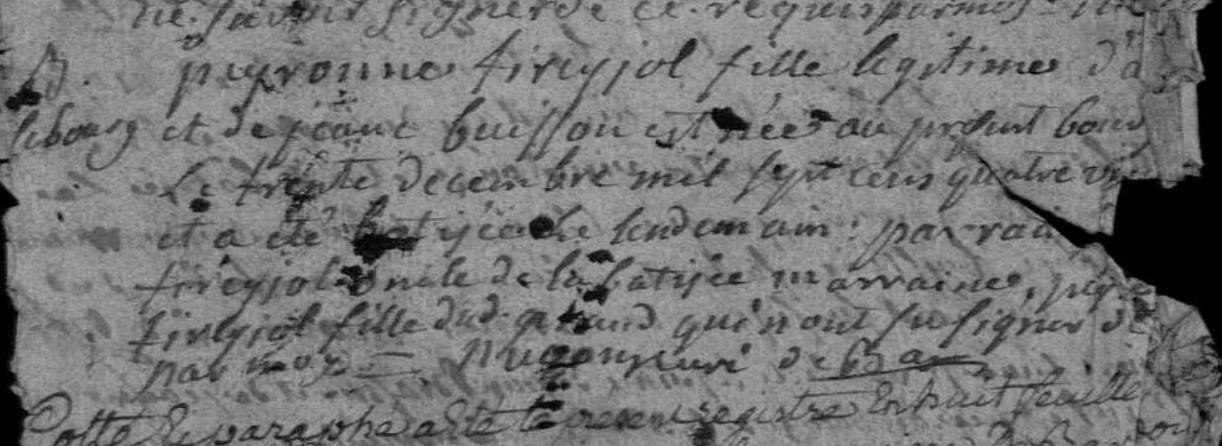 ne savoir signer de ce requis par moy
B. peyronne fireyjol fille legitime d'a
lebourg et de jeanne buisson est née au present bour
Le trente decembre mil sept cens quatre vin
et a été batisée le lendemain: parrain
fireyjol oncle de la batisée marraine,
fireyjol fille dud. qui n'ont su signer de
par moy curé de
Cotté & paraphé a été le present registre En huit feuille